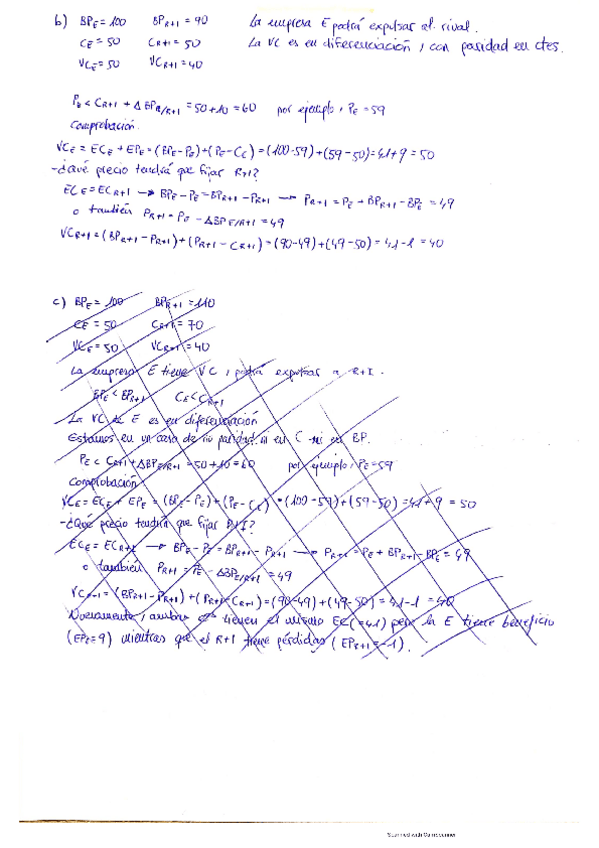 b) BPE = 100 BPR+1 = 90 La empresa E podrá expulsar al rival.
CE = 50 CR+1 = 50 La VC es en diferenciación, con paridad en ctes.
VCE = 50 VCR+1 = 40
PE < CR+1 + ΔBPE/R+1 = 50+10 = 60 por ejemplo, PE = 59
Comprobación
VCE = ECE + EPE = (BPE - PE) + (PE - CE) = (100-59) + (59-50) = 41 + 9 = 50
- ¿Qué precio tendrá que fijar R+1?
ECE = ECR+1 → BPE - PE = BPR+1 - PR+1 → PR+1 = PE + BPR+1 - BPE = 49
o también PR+1 = PE - ΔBPE/R+1 = 49
VCR+1 = (BPR+1 - PR+1) + (PR+1 - CR+1) = (90-49) + (49-50) = 41 - 1 = 40
c) BPE = 100 BPR+1 = 110
CE = 50 CR+1 = 70
VCE = 50 VCR+1 = 40
La empresa E tiene VC, podrá expulsar a R+1.
BPE < BPR+1 CE < CR+1
La VC de E es en diferenciación
Estamos en un caso de no paridad ni en C ni en BP.
PE < CR+1 + ΔBPE/R+1 = 50+10 = 60 por ejemplo, PE = 59
Comprobación
VCE = ECE + EPE = (BPE - PE) + (PE - CE) = (100-59) + (59-50) = 41 + 9 = 50
- ¿Qué precio tendrá que fijar R+1?
ECE = ECR+1 → BPE - PE = BPR+1 - PR+1 → PR+1 = PE + BPR+1 - BPE = 49
o también PR+1 = PE - ΔBPE/R+1 = 49
VCR+1 = (BPR+1 - PR+1) + (PR+1 - CR+1) = (90-49) + (49-50) = 41 - 1 = 40
Nuevamente, ambas tienen el mismo EC (=41) pero la E tiene beneficio
(EPE = 9) mientras que el R+1 tiene pérdidas (EPR+1 = -1).
Scanned with CamScanner